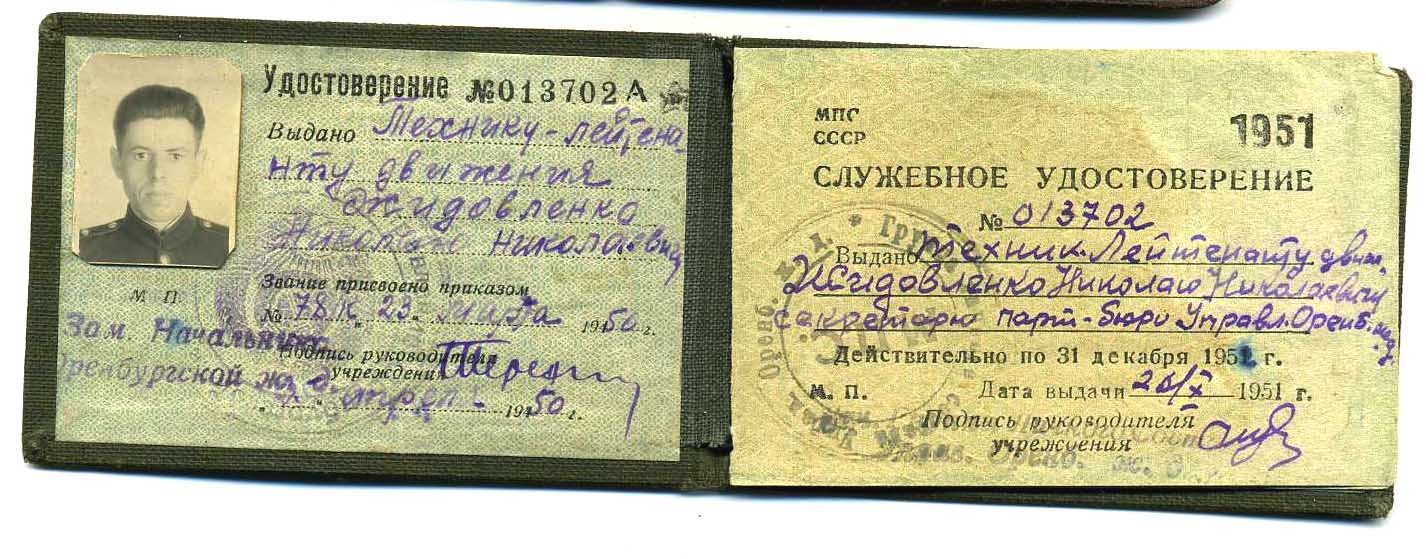 Удостоверение №013702 А
Выдано Технику-лейтена
нту движения
Жидовленко
Николаю Николаевичу
М П
Звание присвоено приказом
№ 78/К " 23 " марта 1950 г.
Зам. Начальника
Подпись руководителя
учреждения
Оренбургской ж. д.
" " апрел 1950 г.
МПС
СССР
1951
СЛУЖЕБНОЕ УДОСТОВЕРЕНИЕ
№ 013702
Выдано Техник Лейтенанту движ.
Жидовленко Николаю Николаевичу
секретарю парт-бюро Управл. Оренб. жд
Действительно по 31 декабря 1952 г.
М. П. Дата выдачи 26/X 1951 г.
Подпись руководителя
учреждения